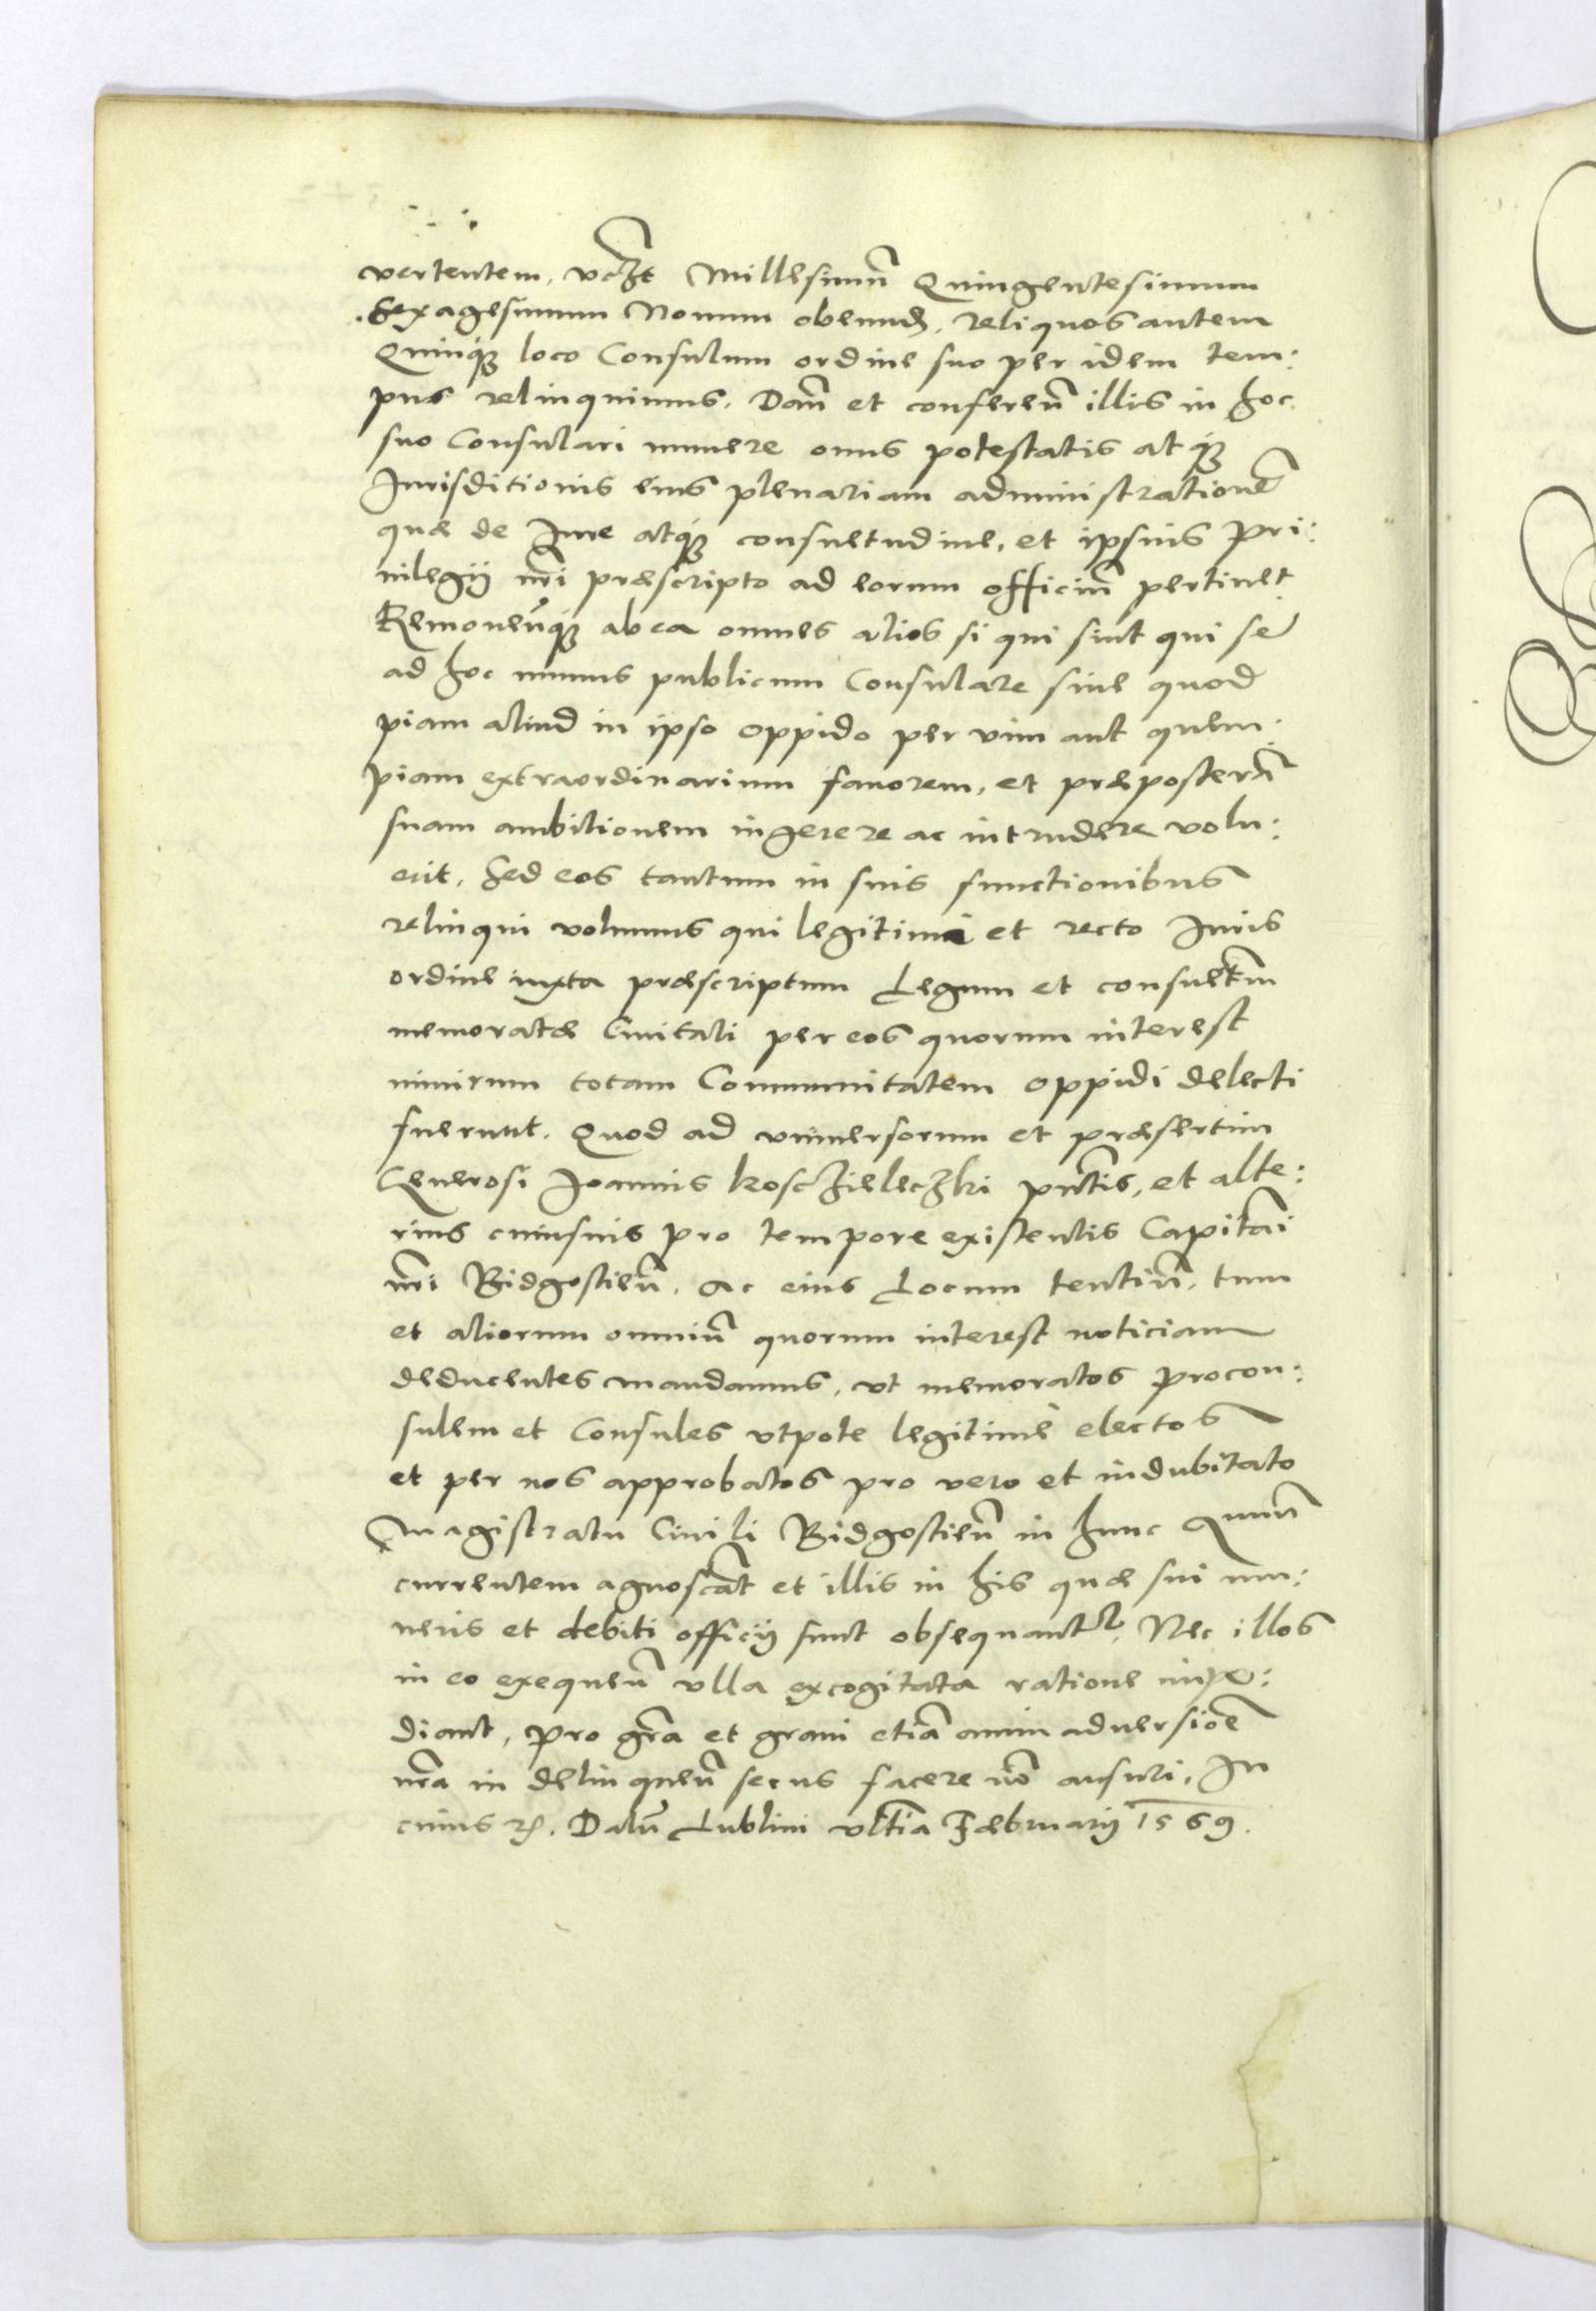 vertentem, vczt Millesimū Quingentesimum
Sexagesimum Nonum obeund, reliquos autem
Quinq̃ loco Consulum ordine suo per idem tem:
pus relinquimus. Dañ et confereñ illis in hoc
suo Consulari munere onus potestatis atq̃
Jurisditionis eius plenariam administrationẽ
quæ de Jure atq̃ consuetudine, et ipsius pri:
uilegij nr̃i præscripto ad eorum officiũ pertinet
Remoueñq̃ ab ea omnes alios si qui sint qui se
ad hoc munus publicum Consulare siue quod
piam aliud in ipso oppido per vim aut quem:
piam extraordinarium fauorem, et præposterã
suam ambitionem ingerere ac intrudere volu:
erit, sed eos tantum in suis functionibus
relinqui volumus qui legitima et recto Juris
ordine iuxta præscriptum Legum et consuetm̃
memoratæ Ciuitati per eos quorum interest
nimirum totam Communitatem oppidi delecti
fuerunt. Quod ad vniuersorum et præsertim
Generosi Joannis Koschieleczki pñtis, et alte:
rius cuiusuis pro tempore existentis Capitãi
nr̃i Bidgostieñ. Ac eius Locum tentiũ, tum
et aliorum omniũ quorum interest noticiam
deducentes mandamus, vt memoratos Procon:
sulem et Consules vtpote legitimè electos
et per nos approbatos pro vero et indubitato
Magistratu Ciuili Bidgostieñ in hunc Annũ
currentem agnoscãt et illis in his quæ sui mu:
neris et debiti officij sunt obsequantr. Nec illos
in eo exequeñ vlla excogitata ratione impe:
diant, pro gr̃a et graui etiã animaduersiõe
nr̃a in delinqueñ secus facere nõ ausuri, In
cuius rei. Datũ Lublini vltĩa Februarij 1569.